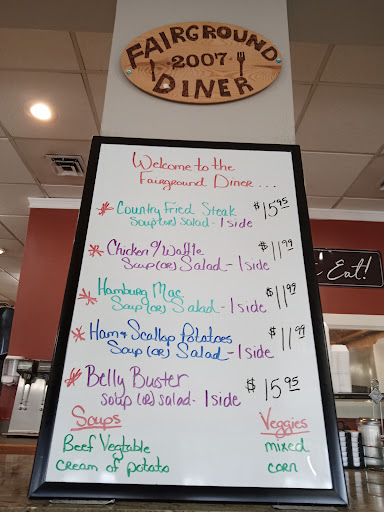 FAIRGROUND
2007
DINER
Welcome to the
Fairground Diner...
* Country Fried Steak $15.95
Soup (or) Salad - 1 side
* Chicken & Waffle $11.99
Soup (or) Salad - 1 side
* Hamburg Mac $11.99
Soup (or) Salad - 1 side
* Ham & Scallop Potatoes $11.99
Soup (or) Salad - 1 side
* Belly Buster $15.95
soup (or) salad - 1 side
Soups
Veggies
Beef Vegtable
mixed
cream of potato
corn
Eat!